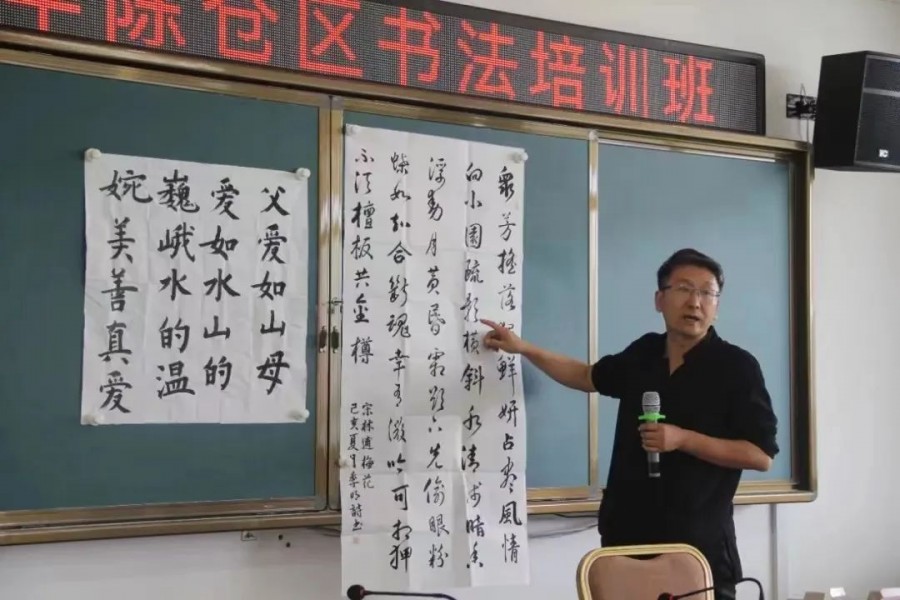 年陈仓区书法培训班
父爱如山母
爱如水山的
巍峨水的温
婉美善真爱
衆芳摇落鲜妍占尽風情
向小園疏影横斜水清浅暗香
浮動月黄昏霜下先偷眼粉
蝶如知合断魂幸有微吟可相狎
不须檀板共金樽
宋林逋梅花
己亥夏月